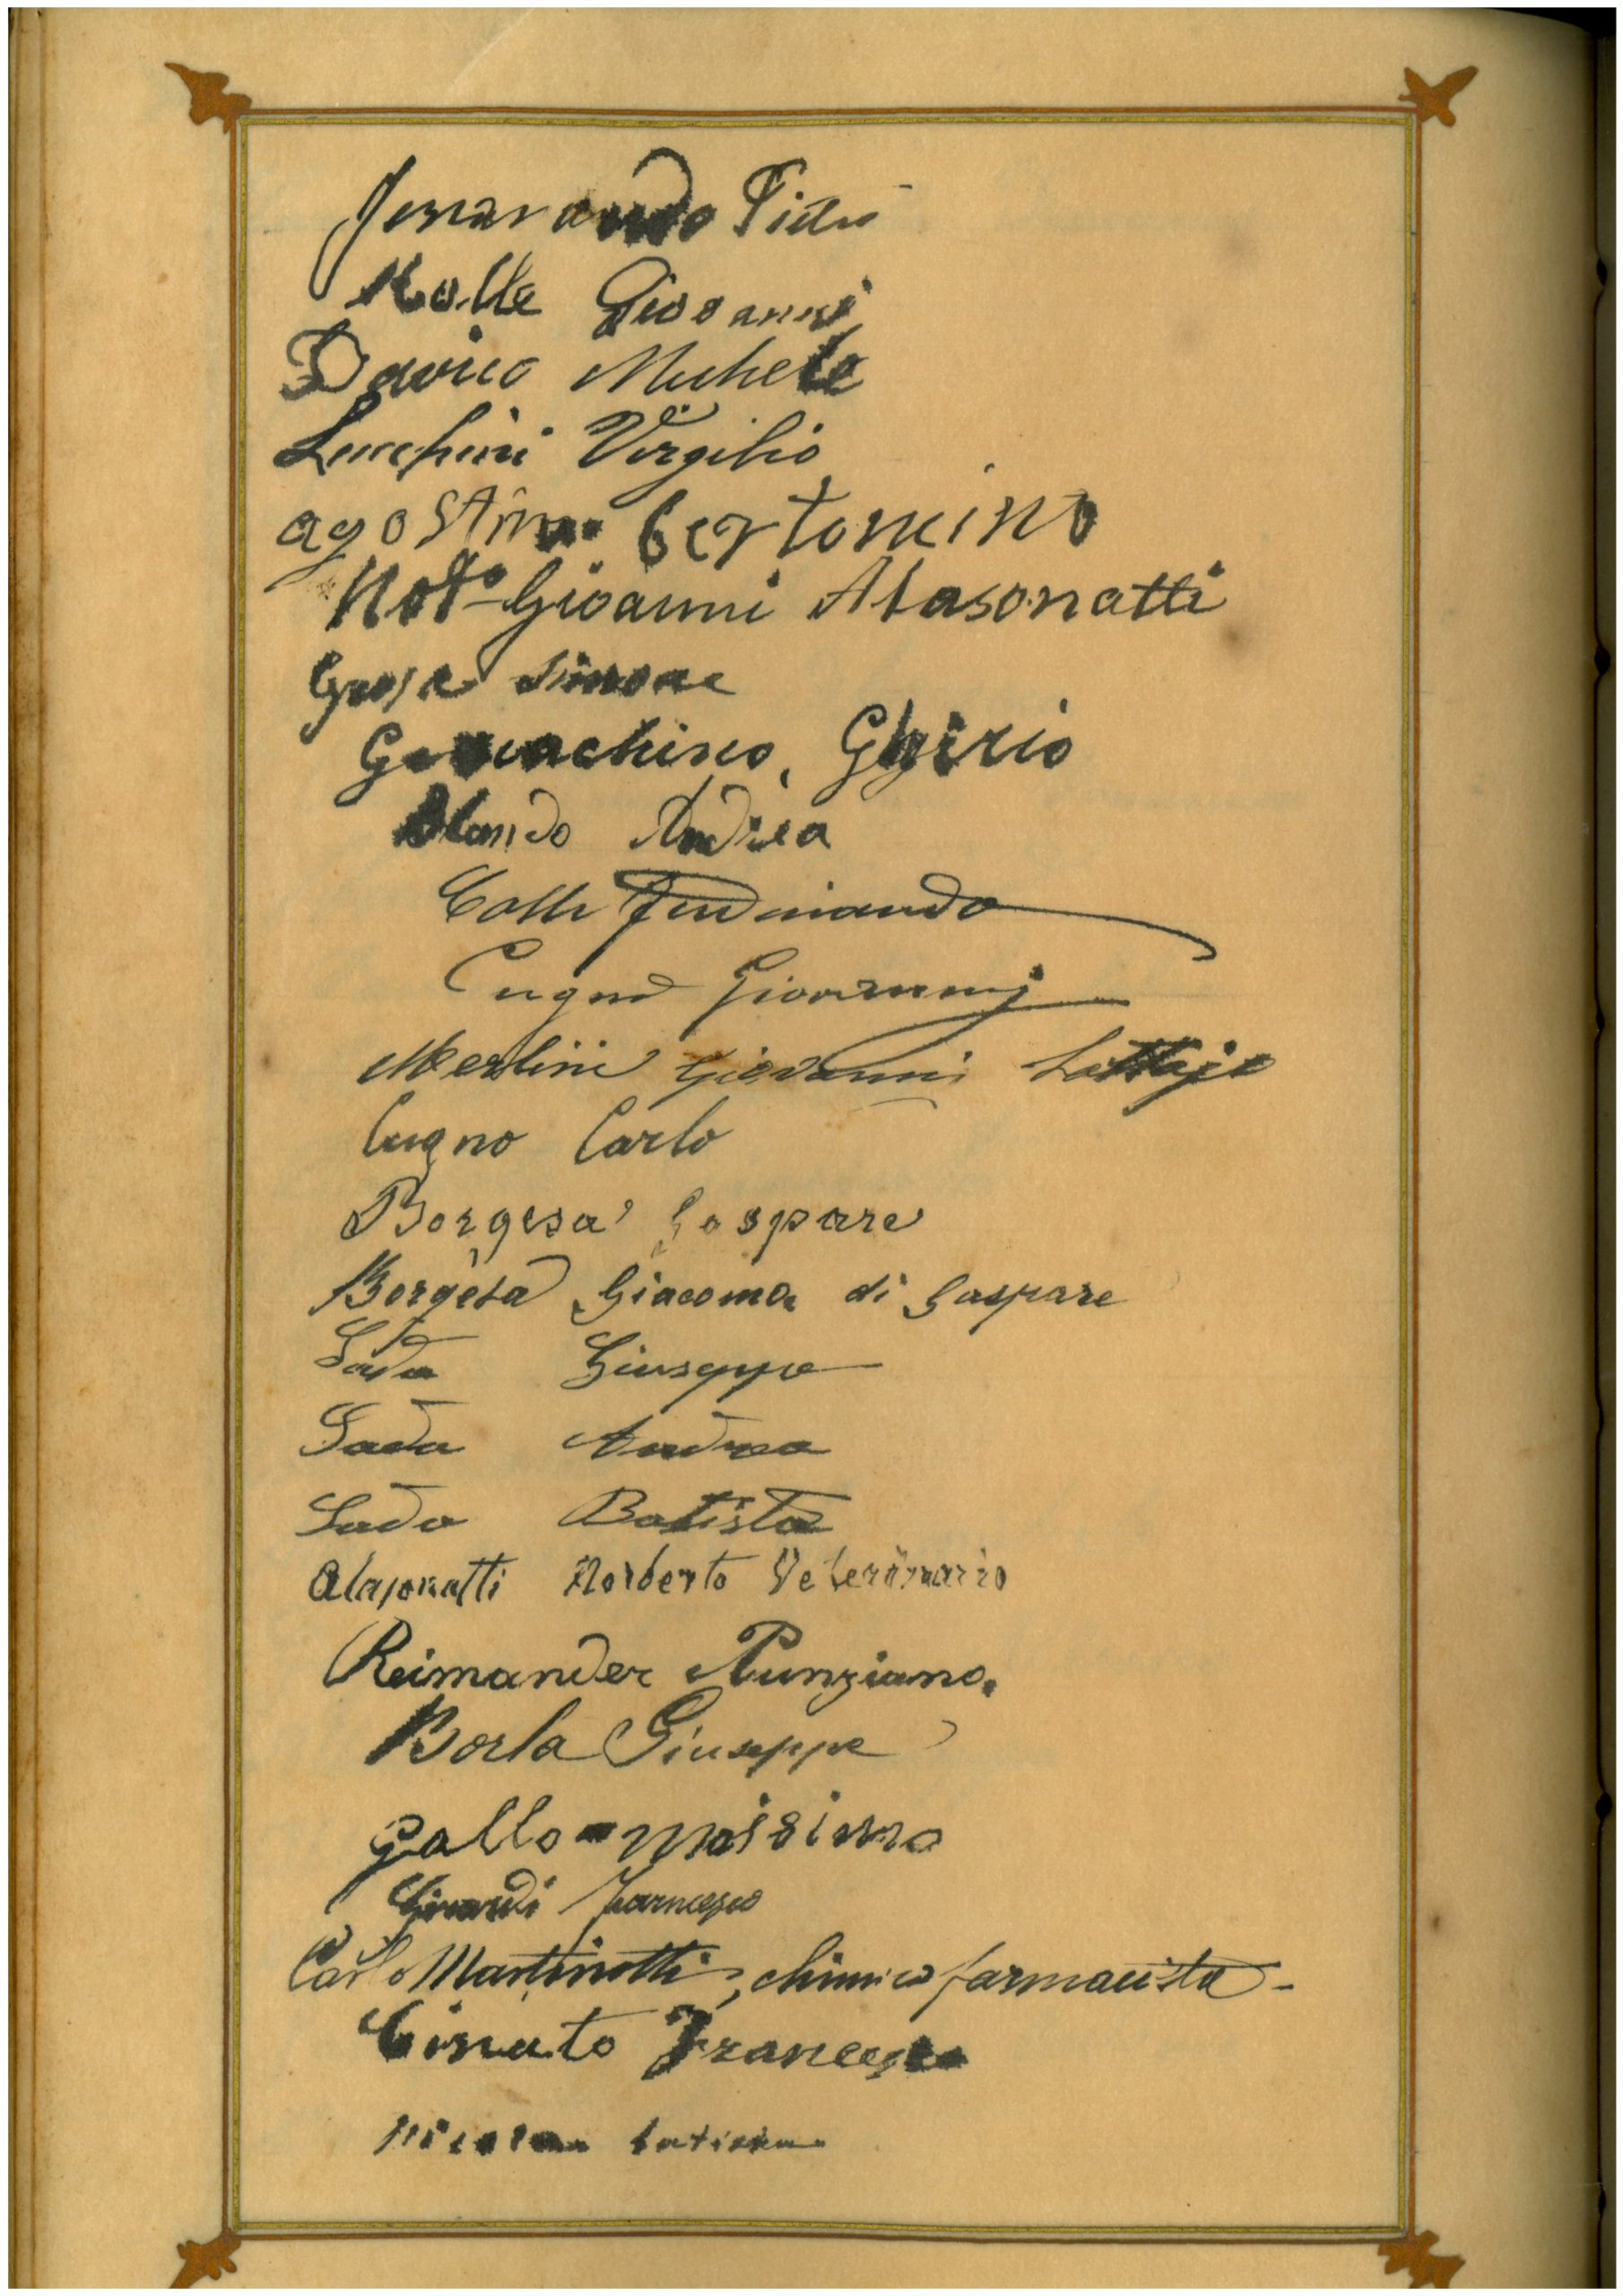 Pietro
Molle Giovanni
Davico Michele
Lucchini Virgilio
agostino bertoncino
Not° Gioanni Alasonatti
Simone
Ghirio
Blando Andrea
Colli Ferdinando
Cugno Giovanni
Merlini Giovanni Lattajo
Cugno Carlo
Borgesa Gaspare
Borgesa Giacomo di Gaspare
Sada Giuseppe
Sada Andrea
Sada Batista
Alasonatti Norberto Veterinario
Reimander Nunziano.
Borla Giuseppe
gallo massimo
Girardi Francesco
Carlo Martinotti, chimico farmacista -
Cinato Francesco